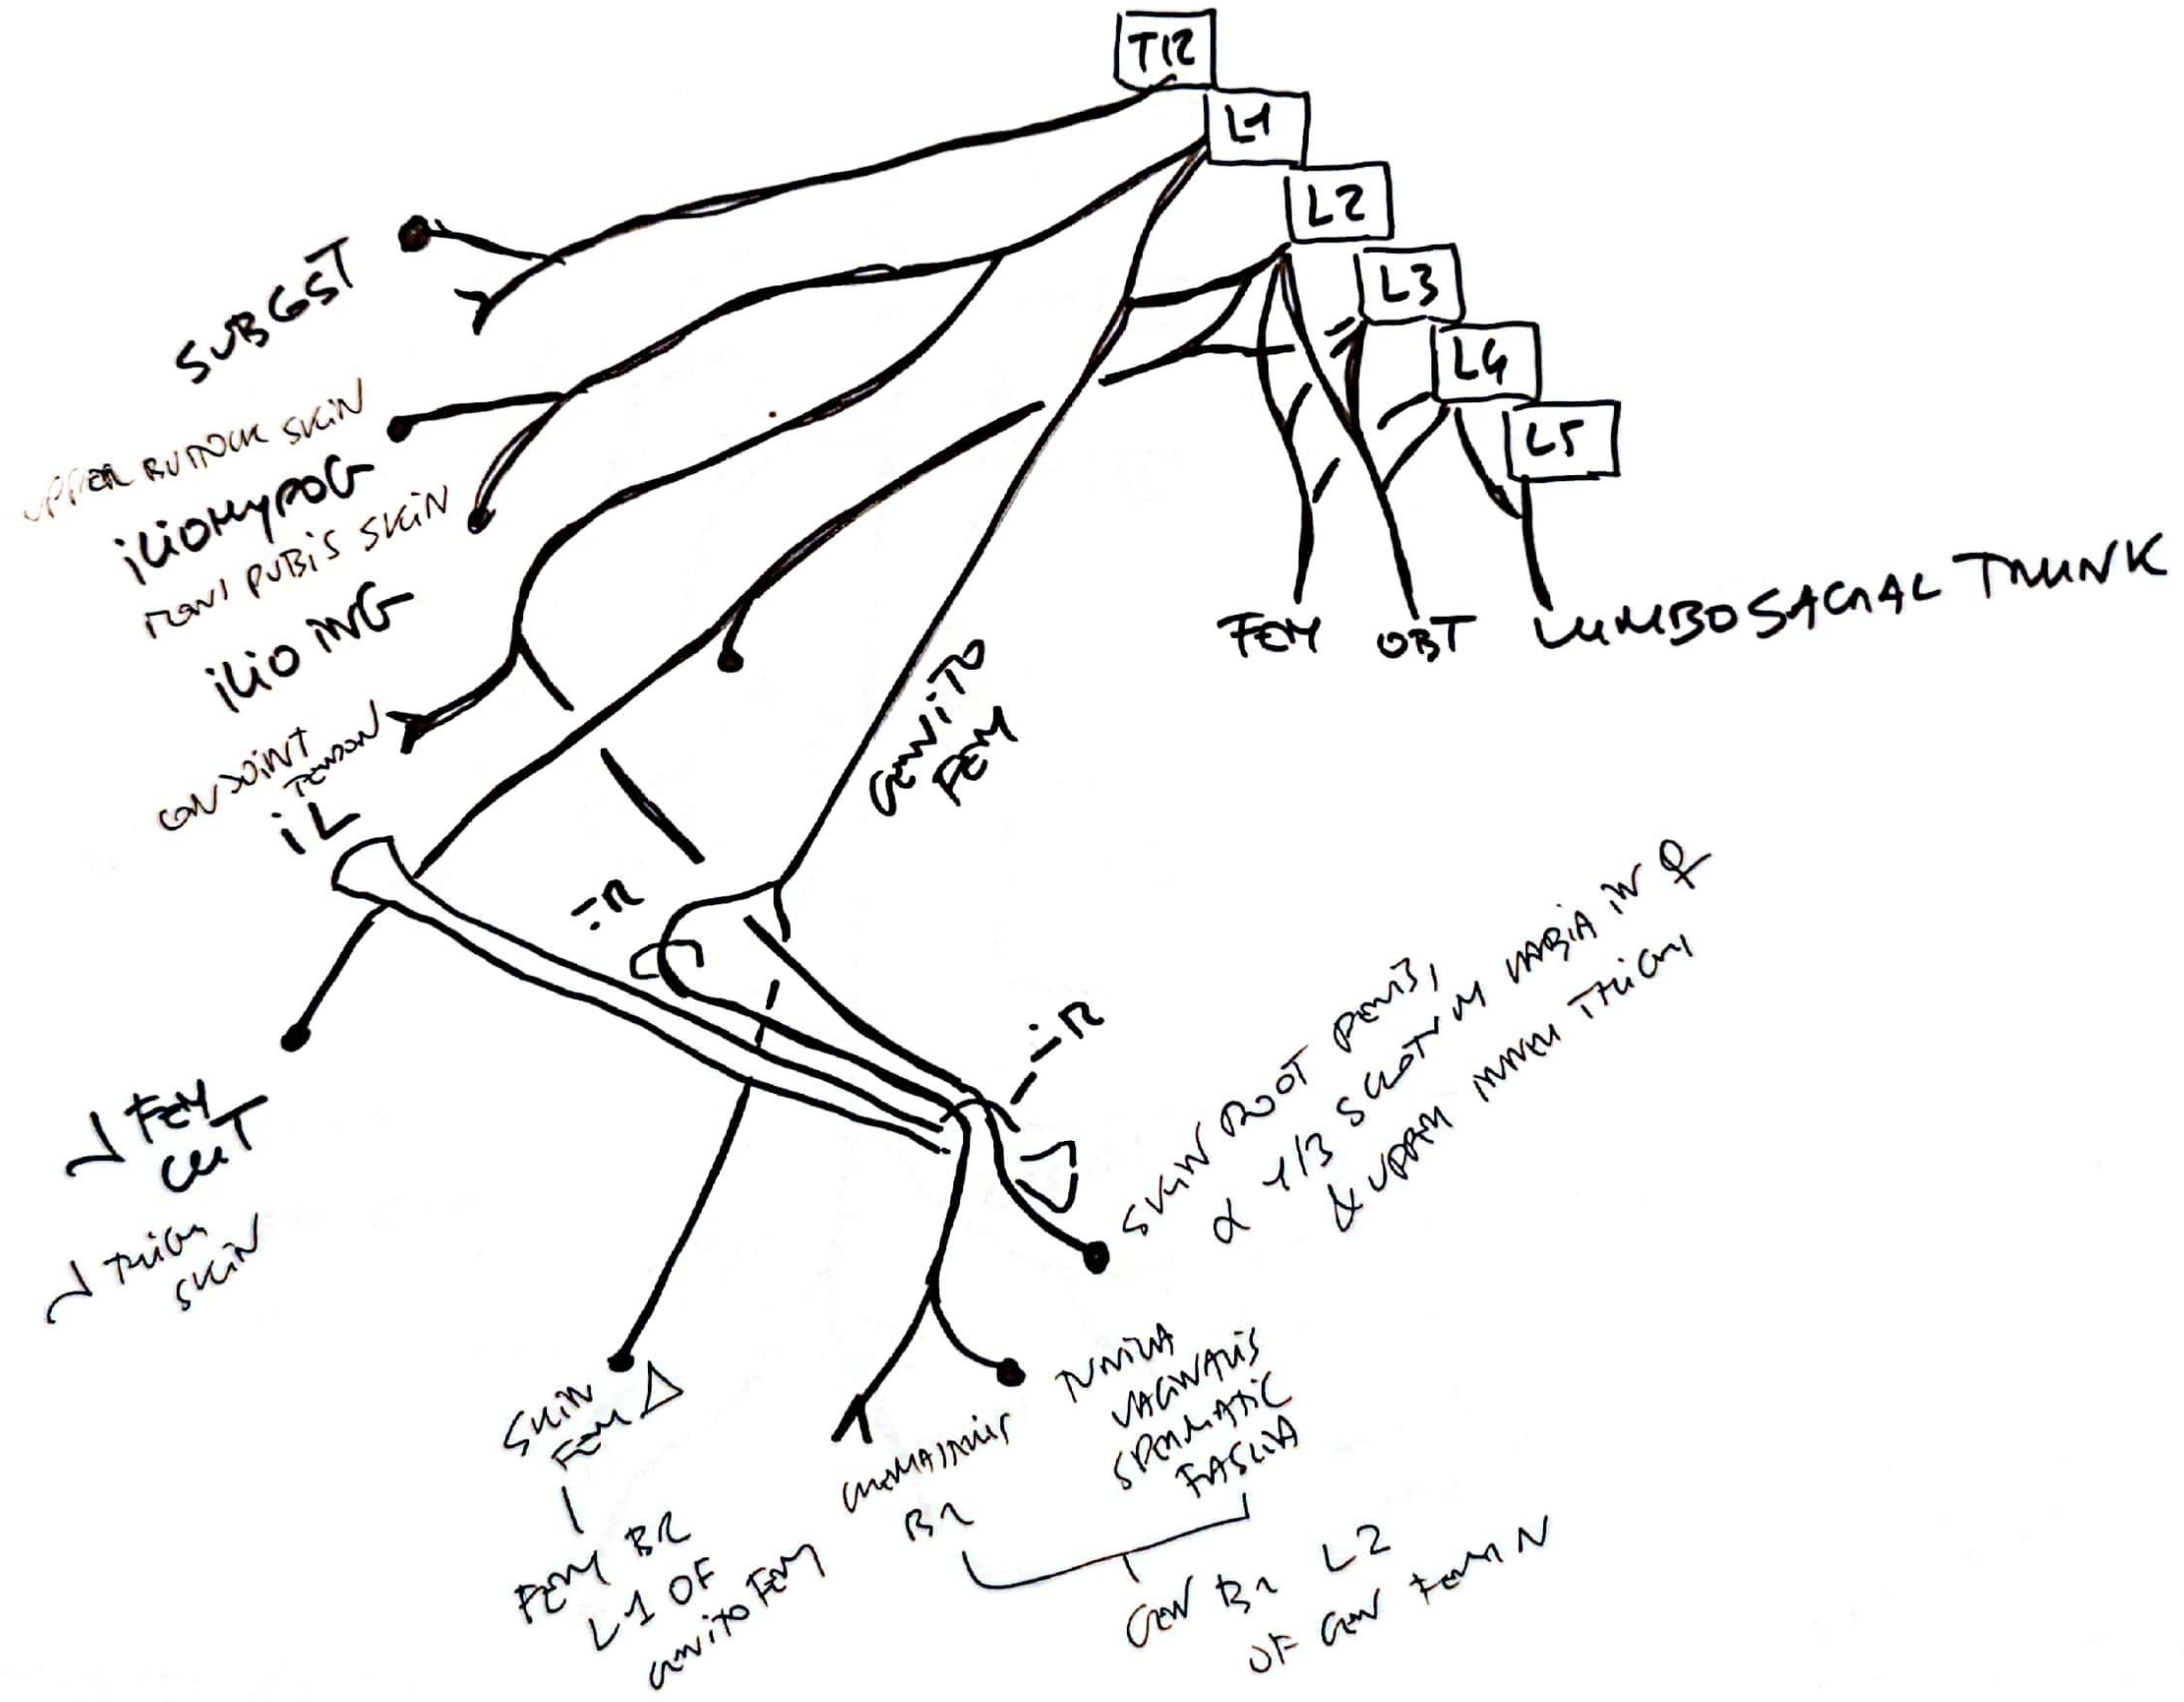 T12
L1
L2
L3
L4
L5
SUBCST
UPPER BUTTOCK SKIN
iLIOHYPOG
MONS PUBIS SKIN
iLIO ING
CONJOINT
TENDON
iL
FEM
OBT
LUMBOSACRAL TRUNK
GENITO
FEM
iR
iR
FEM
CUT
THIGH
SKIN
SKIN ROOT PENIS,
1/3 SCROTUM LABIA IN ♀
& UPPER INNER THIGH
SKIN
FEM △
FEM BR
L1 OF
GENITO FEM
CREMASTERIC
BR
TUNICA
VAGINALIS
SPERMATIC
FASCIA
GEN BR L2
OF GEN FEM N